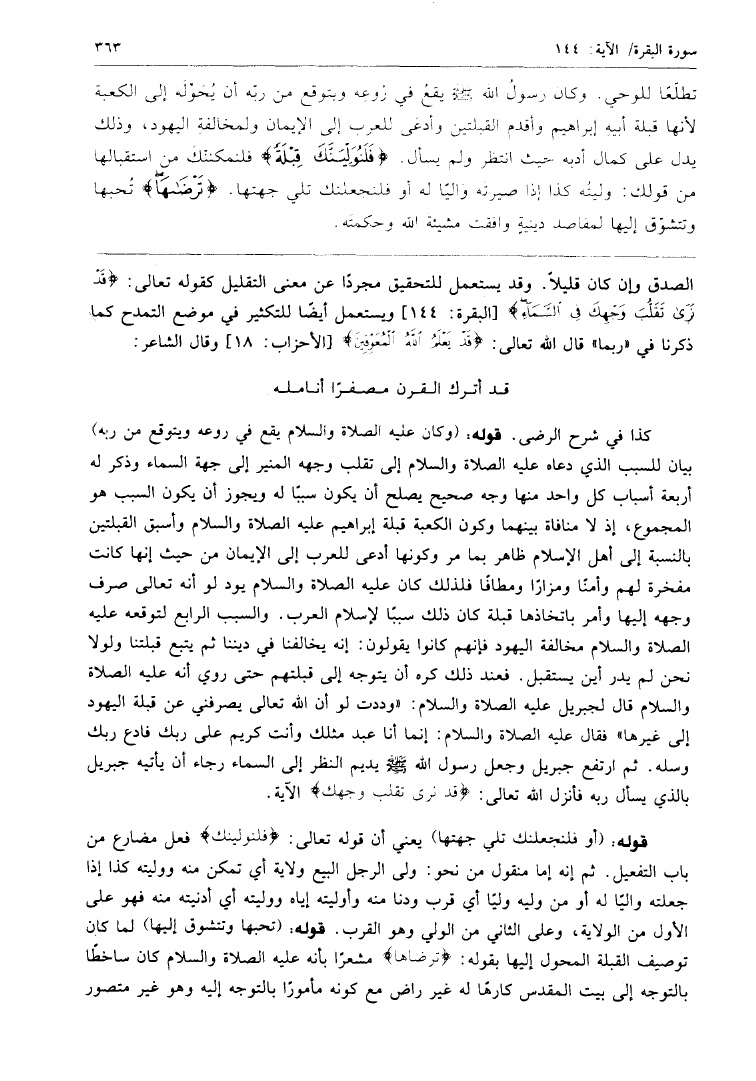 سورة البقرة/ الآية: ١٤٤
٣٦٣
تطلّعًا للوحي. وكان رسولُ الله ﷺ يقعُ في رُوعِه ويتوقع من ربّه أن يُحَوِّلَه إلى الكعبة
لأنها قبلة أبيه إبراهيم وأقدم القبلتين وأدعَى للعرب إلى الإيمان ولمخالفةِ اليهود، وذلك
يدل على كمال أدبه حيث انتظر ولم يسأل. ﴿فَلَنُوَلِّيَنَّكَ قِبْلَةً﴾ فلنمكننّك من استقبالها
من قولك: وليتُه كذا إذا صيرتَه وَاليًا له أو فلنجعلنك تلي جهتها. ﴿تَرْضَىٰهَا﴾ تُحبها
وتتشوّق إليها لمقاصد دينيةٍ وافقت مشيئة الله وحكمتَه.
الصدق وإن كان قليلاً. وقد يستعمل للتحقيق مجردًا عن معنى التقليل كقوله تعالى: ﴿قَدْ
نَرَىٰ تَقَلُّبَ وَجْهِكَ فِي السَّمَآءِ﴾ [البقرة: ١٤٤] ويستعمل أيضًا للتكثير في موضع التمدح كما
ذكرنا في «ربما» قال الله تعالى: ﴿قَدْ يَعْلَمُ اللَّهُ الْمُعَوِّقِينَ﴾ [الأحزاب: ١٨] وقال الشاعر:
قد أترك القرن مصفرًا أنامله
كذا في شرح الرضى. قوله: (وكان عليه الصلاة والسلام يقع في روعه ويتوقع من ربه)
بيان للسبب الذي دعاه عليه الصلاة والسلام إلى تقلب وجهه المنير إلى جهة السماء وذكر له
أربعة أسباب كل واحد منها وجه صحيح يصلح أن يكون سببًا له ويجوز أن يكون السبب هو
المجموع، إذ لا منافاة بينهما وكون الكعبة قبلة إبراهيم عليه الصلاة والسلام وأسبق القبلتين
بالنسبة إلى أهل الإسلام ظاهر بما مر وكونها أدعى للعرب إلى الإيمان من حيث إنها كانت
مفخرة لهم وأمنًا ومزارًا ومطافًا فلذلك كان عليه الصلاة والسلام يود لو أنه تعالى صرف
وجهه إليها وأمر باتخاذها قبلة كان ذلك سببًا لإسلام العرب. والسبب الرابع لتوقعه عليه
الصلاة والسلام مخالفة اليهود فإنهم كانوا يقولون: إنه يخالفنا في ديننا ثم يتبع قبلتنا ولولا
نحن لم يدر أين يستقبل. فعند ذلك كره أن يتوجه إلى قبلتهم حتى روي أنه عليه الصلاة
والسلام قال لجبريل عليه الصلاة والسلام: «وددت لو أن الله تعالى يصرفني عن قبلة اليهود
إلى غيرها» فقال عليه الصلاة والسلام: إنما أنا عبد مثلك وأنت كريم على ربك فادع ربك
وسله. ثم ارتفع جبريل وجعل رسول الله ﷺ يديم النظر إلى السماء رجاء أن يأتيه جبريل
بالذي يسأل ربه فأنزل الله تعالى: ﴿قد نرى تقلب وجهك﴾ الآية.
قوله: (أو فلنجعلنك تلي جهتها) يعني أن قوله تعالى: ﴿فلنولينك﴾ فعل مضارع من
باب التفعيل. ثم إنه إما منقول من نحو: ولى الرجل البيع ولاية أي تمكن منه ووليته كذا إذا
جعلته واليًا له أو من وليه وليًا أي قرب ودنا منه وأوليته إياه ووليته أي أدنيته منه فهو على
الأول من الولاية، وعلى الثاني من الولي وهو القرب. قوله: (تحبها وتتشوق إليها) لما كان
توصيف القبلة المحول إليها بقوله: ﴿ترضاها﴾ مشعرًا بأنه عليه الصلاة والسلام كان ساخطًا
بالتوجه إلى بيت المقدس كارهًا له غير راض مع كونه مأمورًا بالتوجه إليه وهو غير متصور